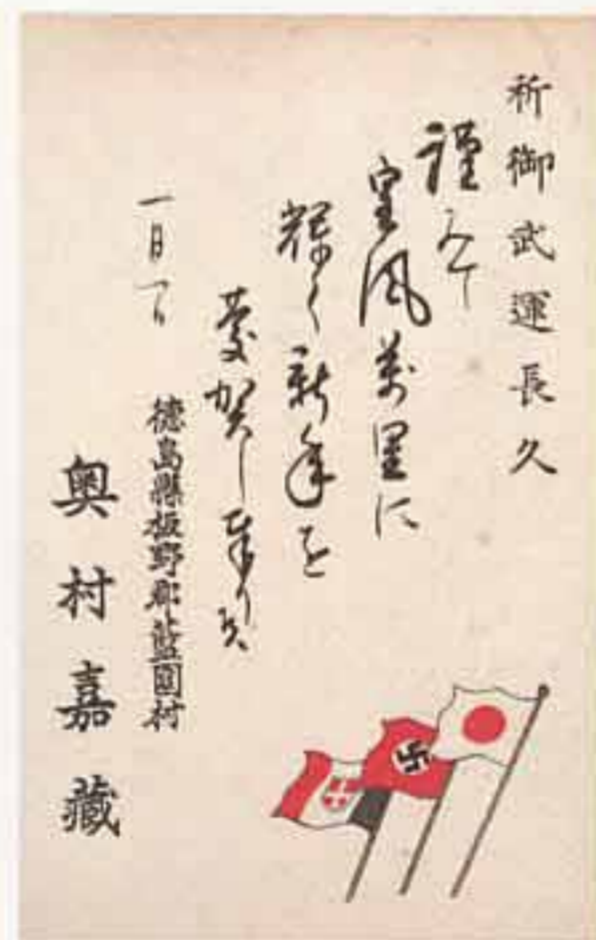 祈御武運長久
謹みて
皇風萬里に
輝く新年を
慶賀し奉り候
一月一日
德島縣板野郡藍園村
奥村嘉藏